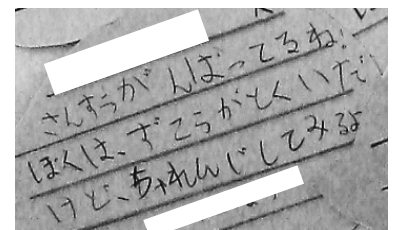 さんすうがんばってるね!
ぼくは、ずこうがとくいだ
けど、ちゃれんじしてみるよ